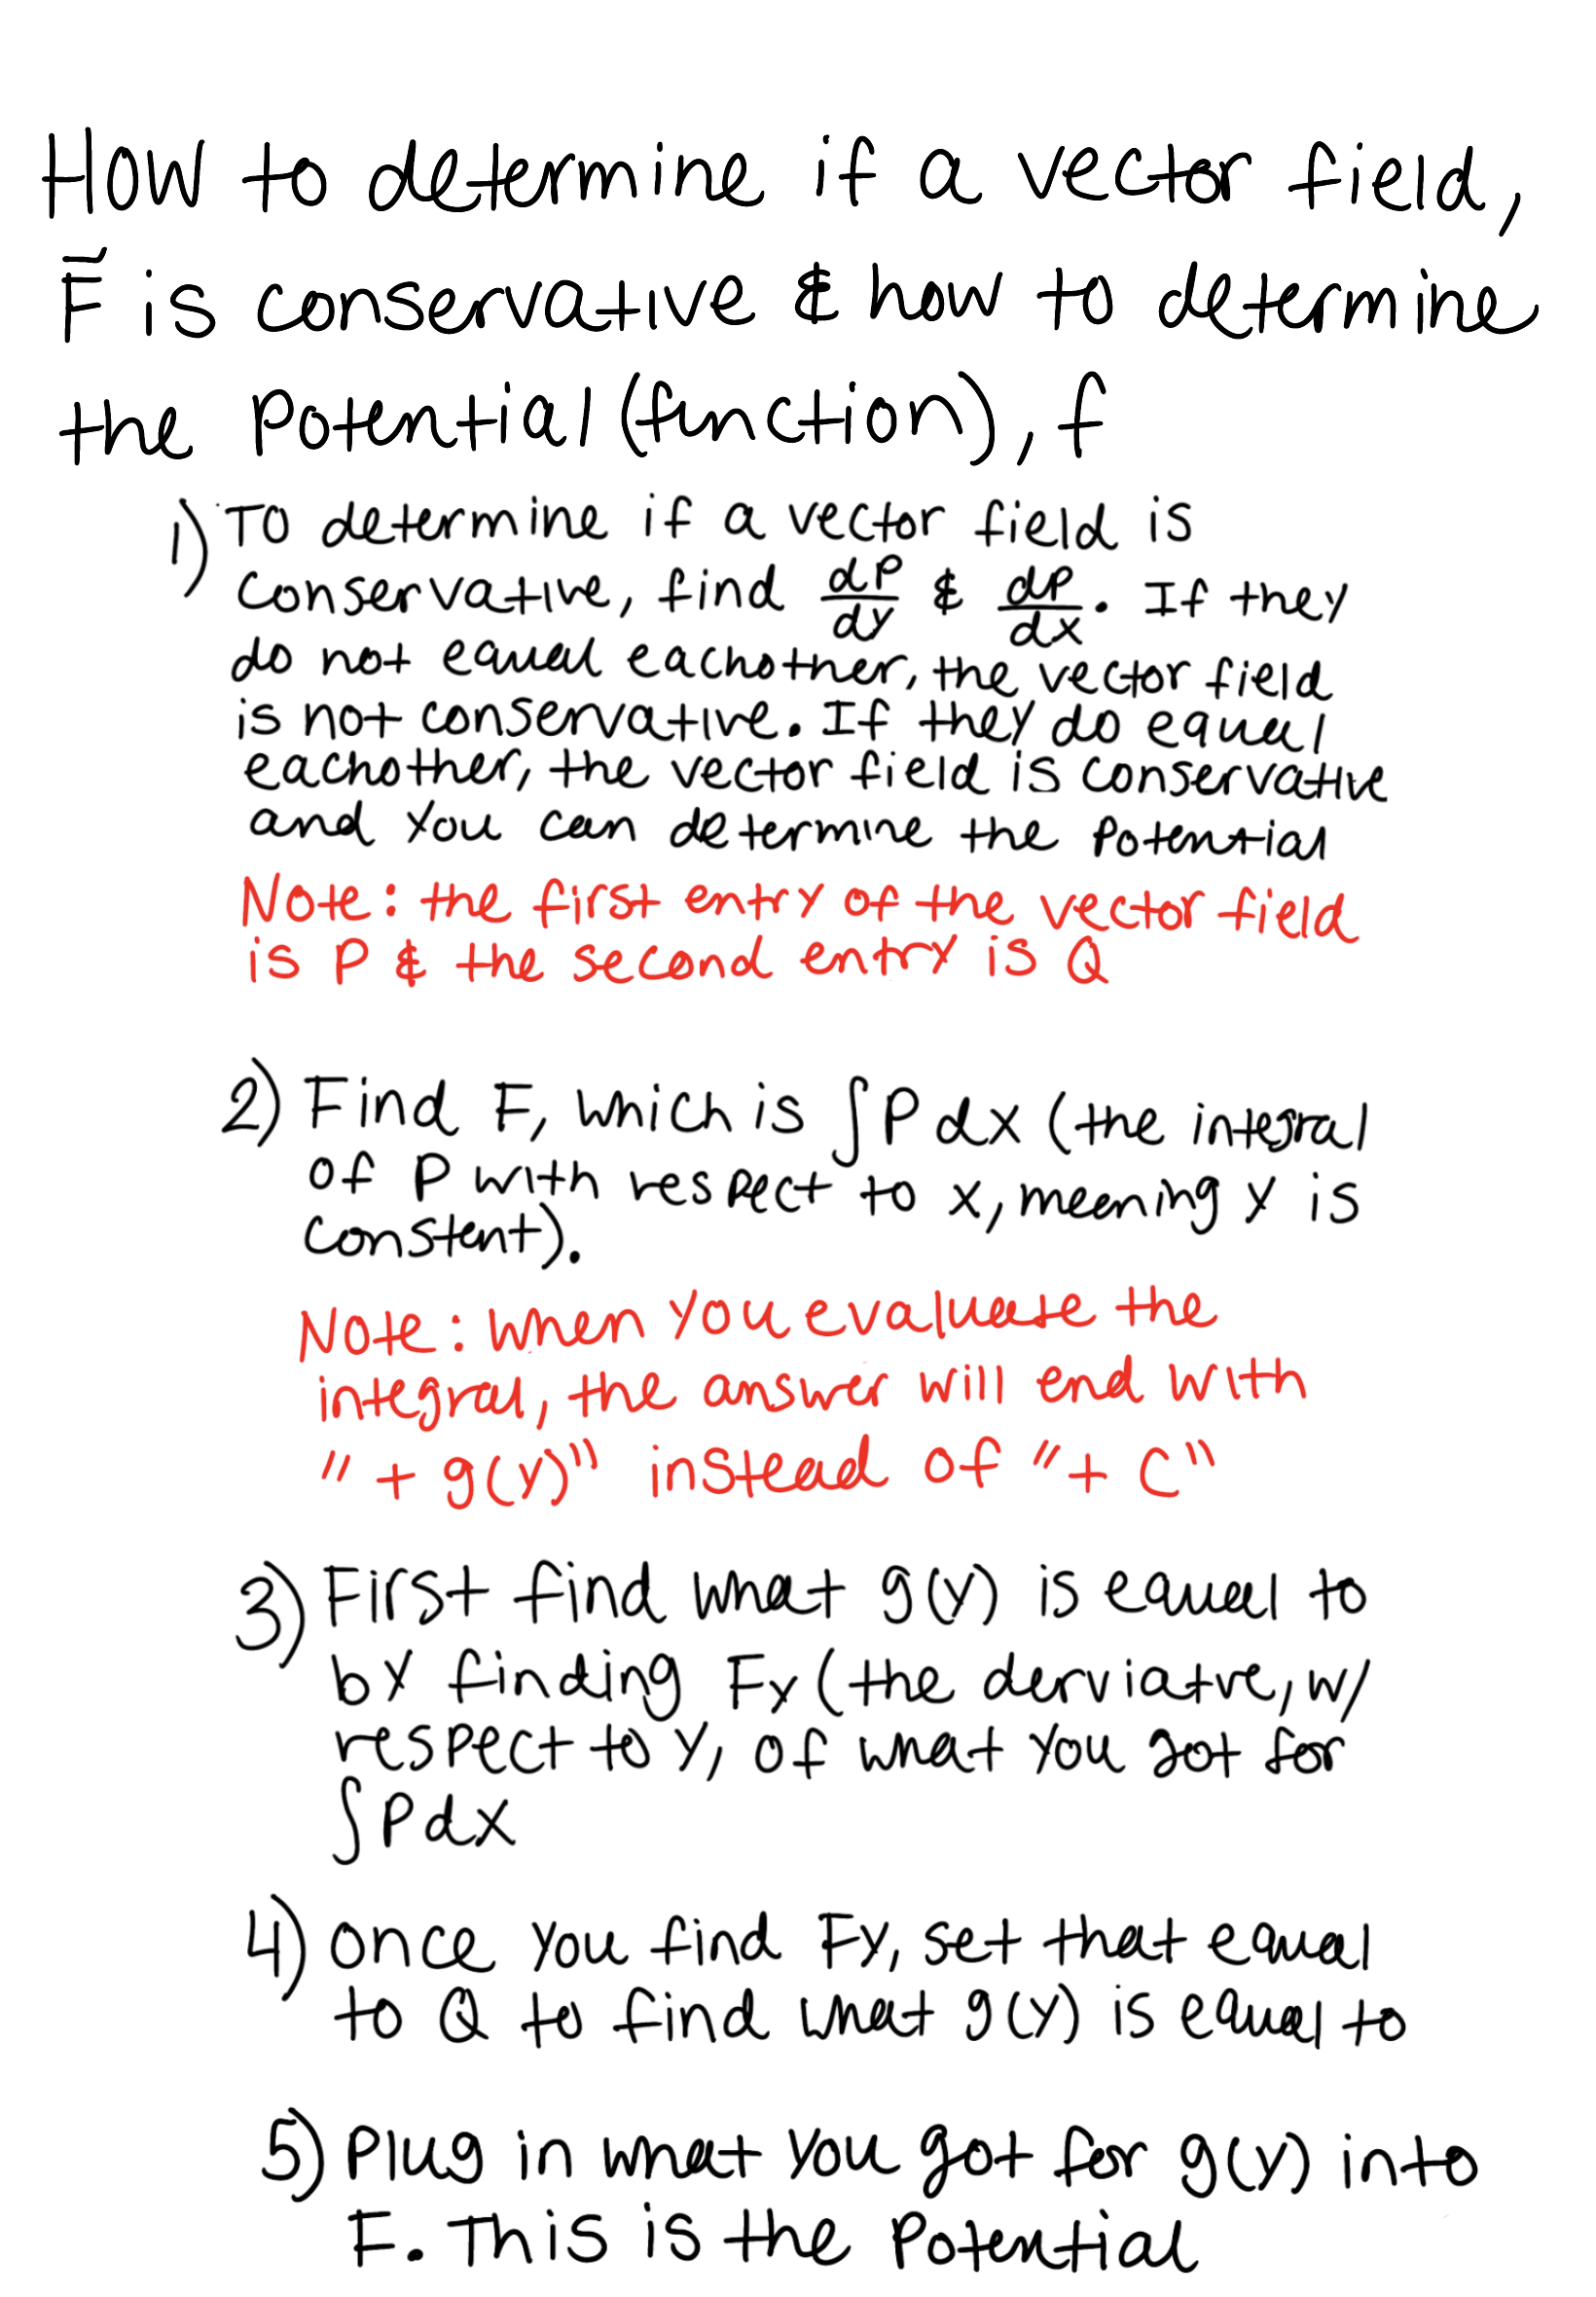 How to determine if a vector field,
F⃗ is conservative & how to determine
the potential (function), f
1) To determine if a vector field is
conservative, find dP/dy & dP/dx. If they
do not equal eachother, the vector field
is not conservative. If they do equal
eachother, the vector field is conservative
and you can determine the potential
Note: the first entry of the vector field
is P & the second entry is Q
2) Find F, which is ∫P dx (the integral
of P with respect to x, meaning y is
constant).
Note: when you evaluate the
integral, the answer will end with
"+ g(y)" instead of "+ C"
3) First find what g(y) is equal to
by finding Fy (the derviatve, w/
respect to y, of what you got for
∫Pdx
4) Once you find Fy, set that equal
to Q to find what g(y) is equal to
5) Plug in what you got for g(y) into
F. This is the potential